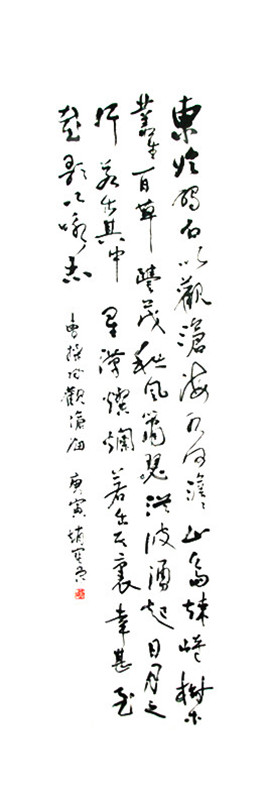 東臨碣石以觀滄海水何澹〻山島竦峙樹木
叢生百草豐茂秋風蕭瑟洪波湧起日月之
行若出其中星漢燦爛若出其裏幸甚至
哉歌以詠志
曹操詩觀滄海 庚寅 趙